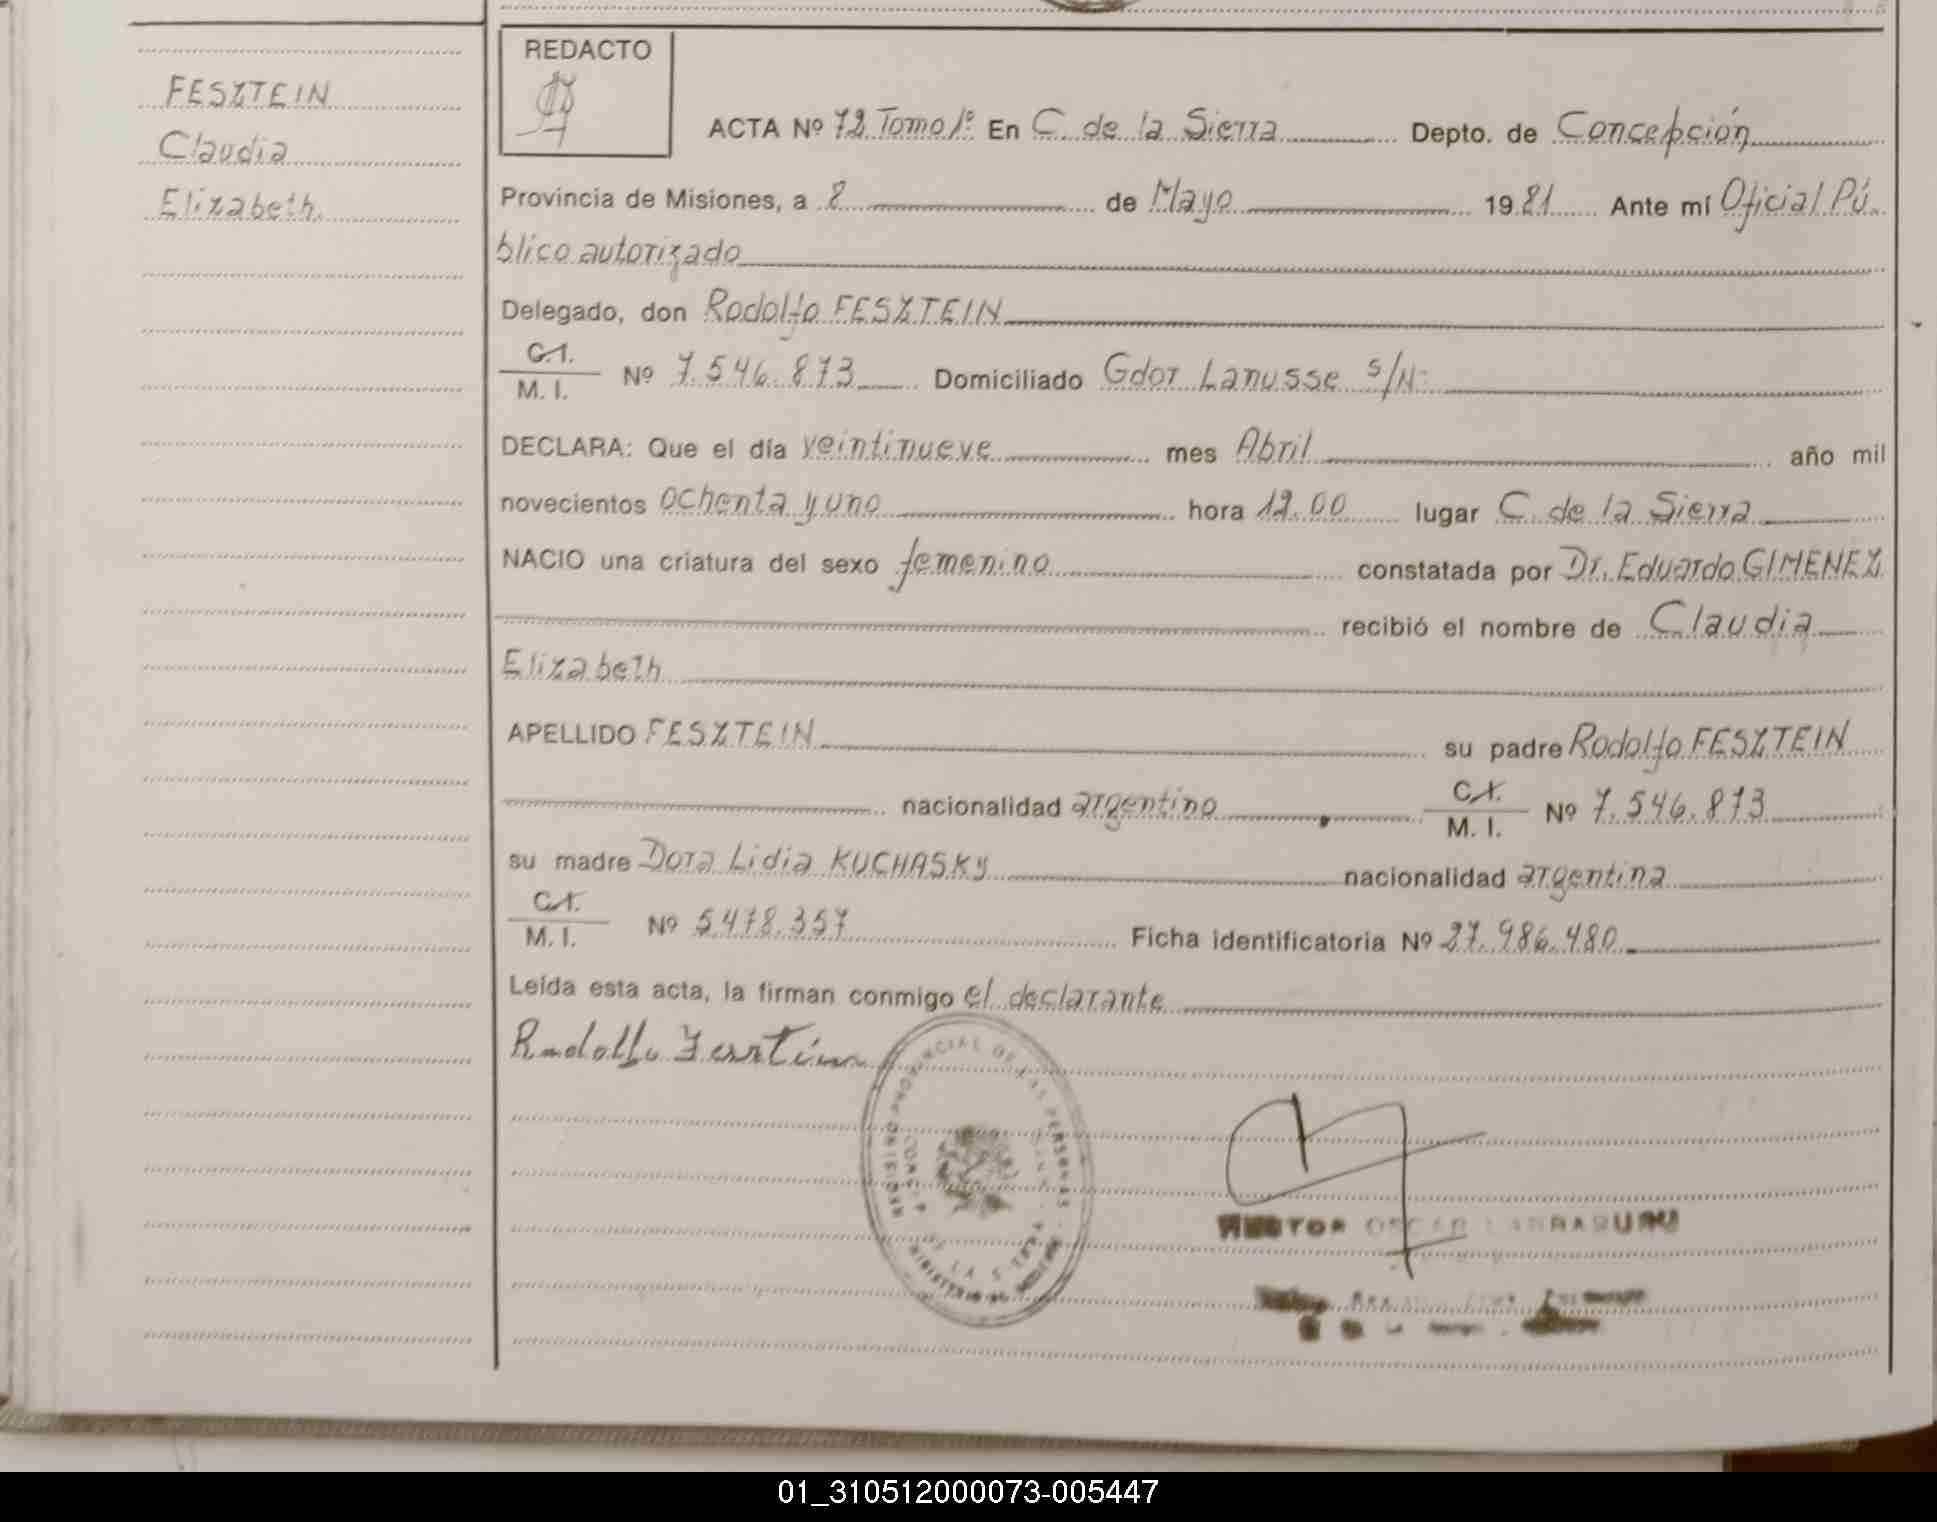 FESZTEIN
Claudia
Elizabeth.
REDACTO
ACTA Nº 72 Tomo 1º En C. de la Sierra Depto. de Concepción
Provincia de Misiones, a 8 de Mayo 1981 Ante mí Oficial Pú-
blico autorizado
Delegado, don Rodolfo FESZTEIN
C.I.
M. I. Nº 7.546.873 Domiciliado Gdor Lanusse s/N:
DECLARA: Que el día veintinueve mes Abril año mil
novecientos ochenta y uno hora 12.00 lugar C. de la Sierra
NACIO una criatura del sexo femenino constatada por Dr. Eduardo GIMENEZ
recibió el nombre de Claudia
Elizabeth
APELLIDO FESZTEIN su padre Rodolfo FESZTEIN
nacionalidad argentino C.I. M. I. Nº 7.546.873
su madre Dora Lidia KUCHASKY nacionalidad argentina
C.I.
M. I. Nº 5478.357 Ficha identificatoria Nº 27.986.480
Leída esta acta, la firman conmigo el declarante
Rodolfo Fesztein
REGISTRO PROVINCIAL DE LAS PERSONAS
DE LA SIERRA
OSCAR LARRABURU
01_310512000073-005447